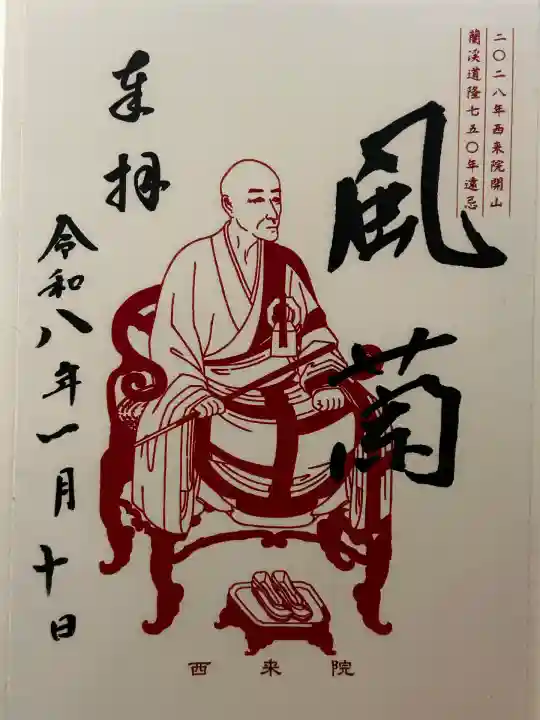 二〇二八年西来院開山
蘭渓道隆七五〇年遠忌
風
蘭
奉拝
令和八年一月十日
西来院